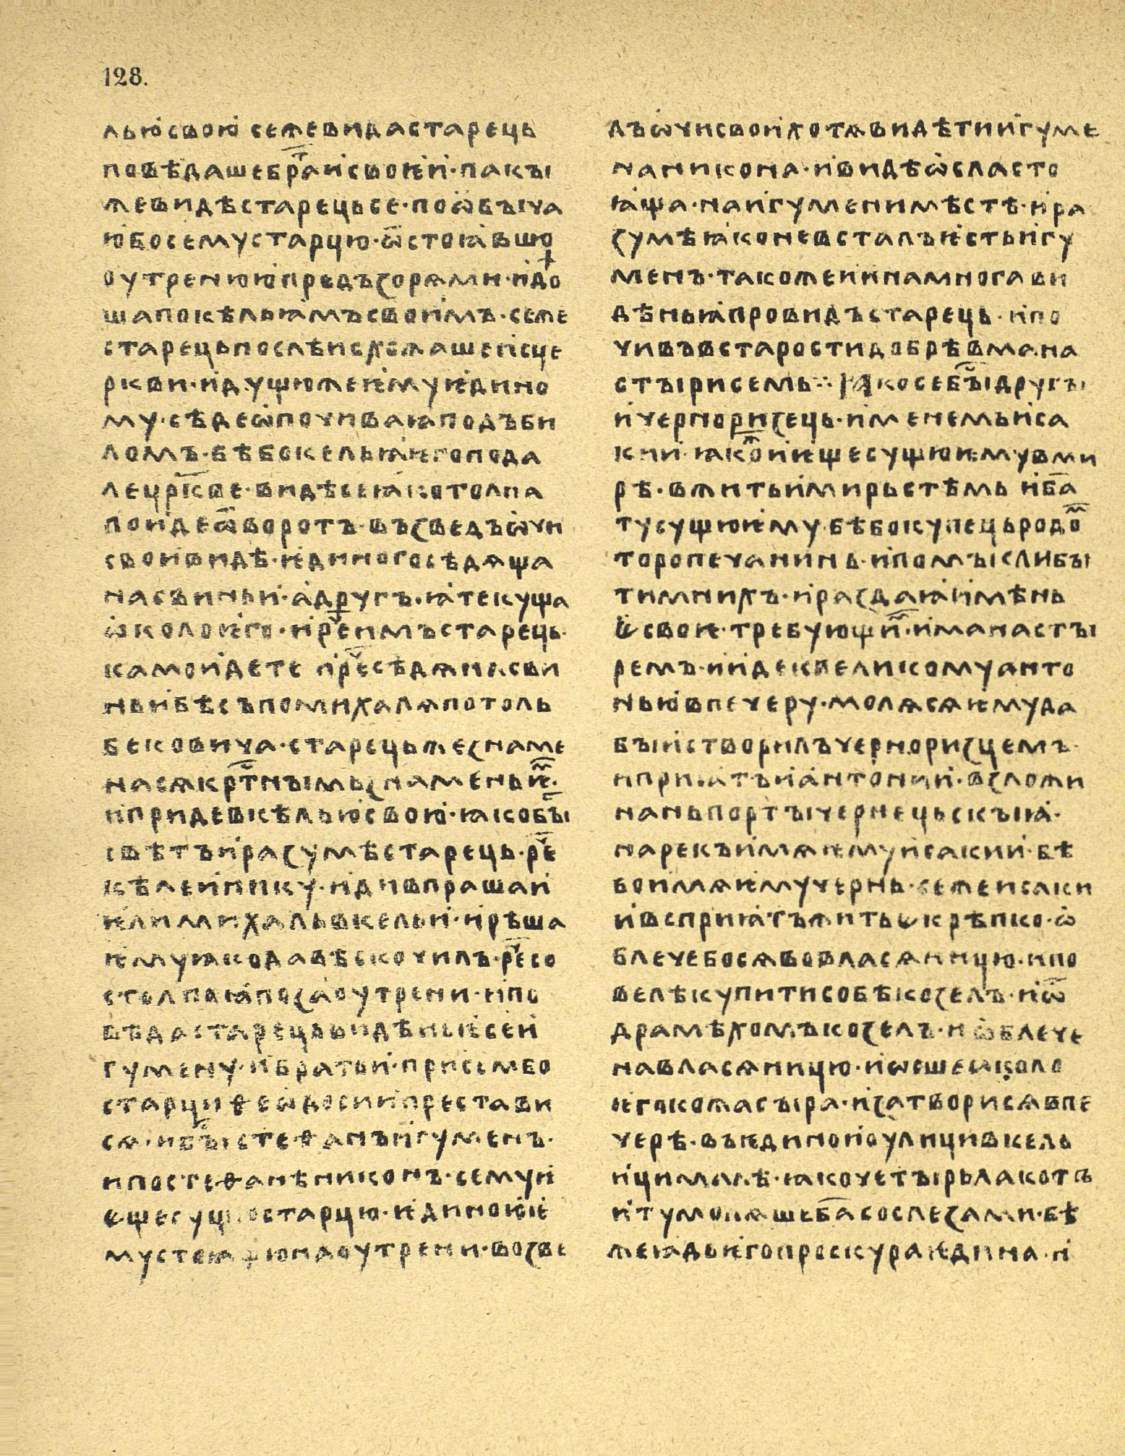 128.
льюсвою се жевидастарець
повѣдашебра҃исвоѥи·пакы
жевидѣстарецьсе·поѡбыча
юбосемустарцю·ѿстоꙗвшю
оутренюипредъꙁорѧми·идо
шапокѣльꙗмъсвоимъ·сеже
старецьпослѣисхожашеисце
ркви·идущюжеѥмуѥдино
му·сѣдеѡпочиваꙗподъби
ломъ·бѣбокельꙗѥгопода
лецр҃кве·видѣсеꙗкотолпа
поидеѿворотъ·въꙁведъѡчи
своивидѣ·ѥдиногосѣдѧща
насвиньи·адругъ·ꙗтекуща
ѡколоѥго·ире҃имъстарець·
камоидете ире҃сѣдѧнасви
ньибѣсъпомихалѧпотоль
бековича·старецьжеꙁнаме
насѧкрт҃нымьꙁнаменьи҃·
ипридевкѣльюсвою·ꙗкобы҃
свѣтъираꙁумѣстарець·ре҃
кѣлеипику·идивпрашаи
ѥлимихальвкельи·ирѣша
ѥмуꙗкодавѣскочилъ·ре҃со
столпꙗпоꙁаоутрени·ипо
вѣдастарецьвидѣньѥсеи
гумену·ибратьи·присембо
старциѳеѡдосиипрестави
сѧ·ибы҃стеѳанъигуменъ·
ипостеѳанѣниконъ·семуи
ещесущюстарцю·ѥдиноюѥ
мустоꙗщюнаоутрени·воꙁве
лъѡчисвоихотѧвидѣтиигуме
наникона·ивидѣѡсласто
ꙗща·наигуменимѣстѣ·ира
ꙁумѣꙗконевсталъѥстьигу
менъ·такожеиинамногави
дѣньꙗпровидъстарець·ипо
чивъвстаростидобрѣвмана
стырисемь·:· Ꙗкосебы҃идругы
ичерноризець·именемьиса
кии·ꙗкож҃иѥщесущюѥмувми
рѣ·вжитьимирьстѣмь иба҃
тусущюѥму·бѣбокупецьродо҃
торопечанинъ·ипомыслибы
тимнихъ·ираꙁдаꙗимѣнь
ѥсвоѥ·требующи҃·иманасты
ремъ·иидеквеликомуанто
ньювпечеру·молѧсѧѥмуда
быистворилъчерноризцемъ·
иприꙗтъиантонии·вꙁложи
наньпортычернецьскыꙗ·
нарекъимѧѥмуисакии·бѣ
боимѧѥмучернь·сежеисаки
ивсприꙗтъжитьѥкрѣпко·ѡ
блечебосѧвовласѧницю·ипо
велѣкупитисобѣкоꙁелъ·иѿ
драмѣхомъкоꙁелъ·иѡблече
навласѧницю·иѡсшеѡколо
ѥгокожасыра·иꙁатворисѧвпе
черѣ·въѥдинойоулицивкель
ицималѣ·ꙗкочетырьлакотъ
итумолѧшеба҃сослеꙁами·бѣ
жеꙗдьѥгопроскураѥдина·и